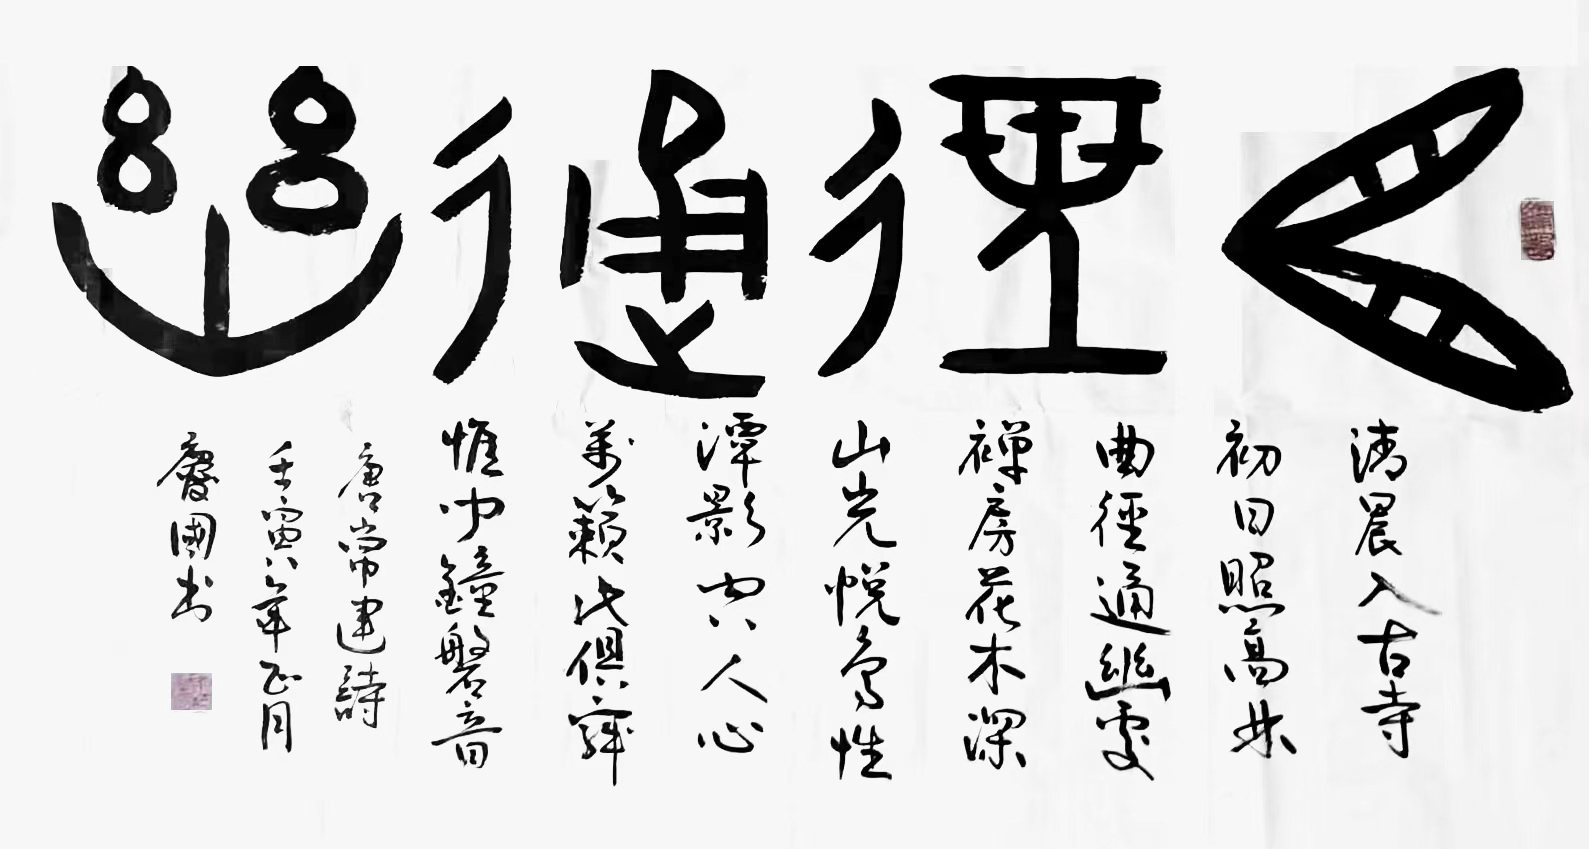 曲徑通幽
清晨入古寺
初日照高林
曲徑通幽處
禪房花木深
山光悦鳥性
潭影空人心
萬籟此俱寂
惟聞鐘磐音
唐常建詩
壬寅年正月
慶國书